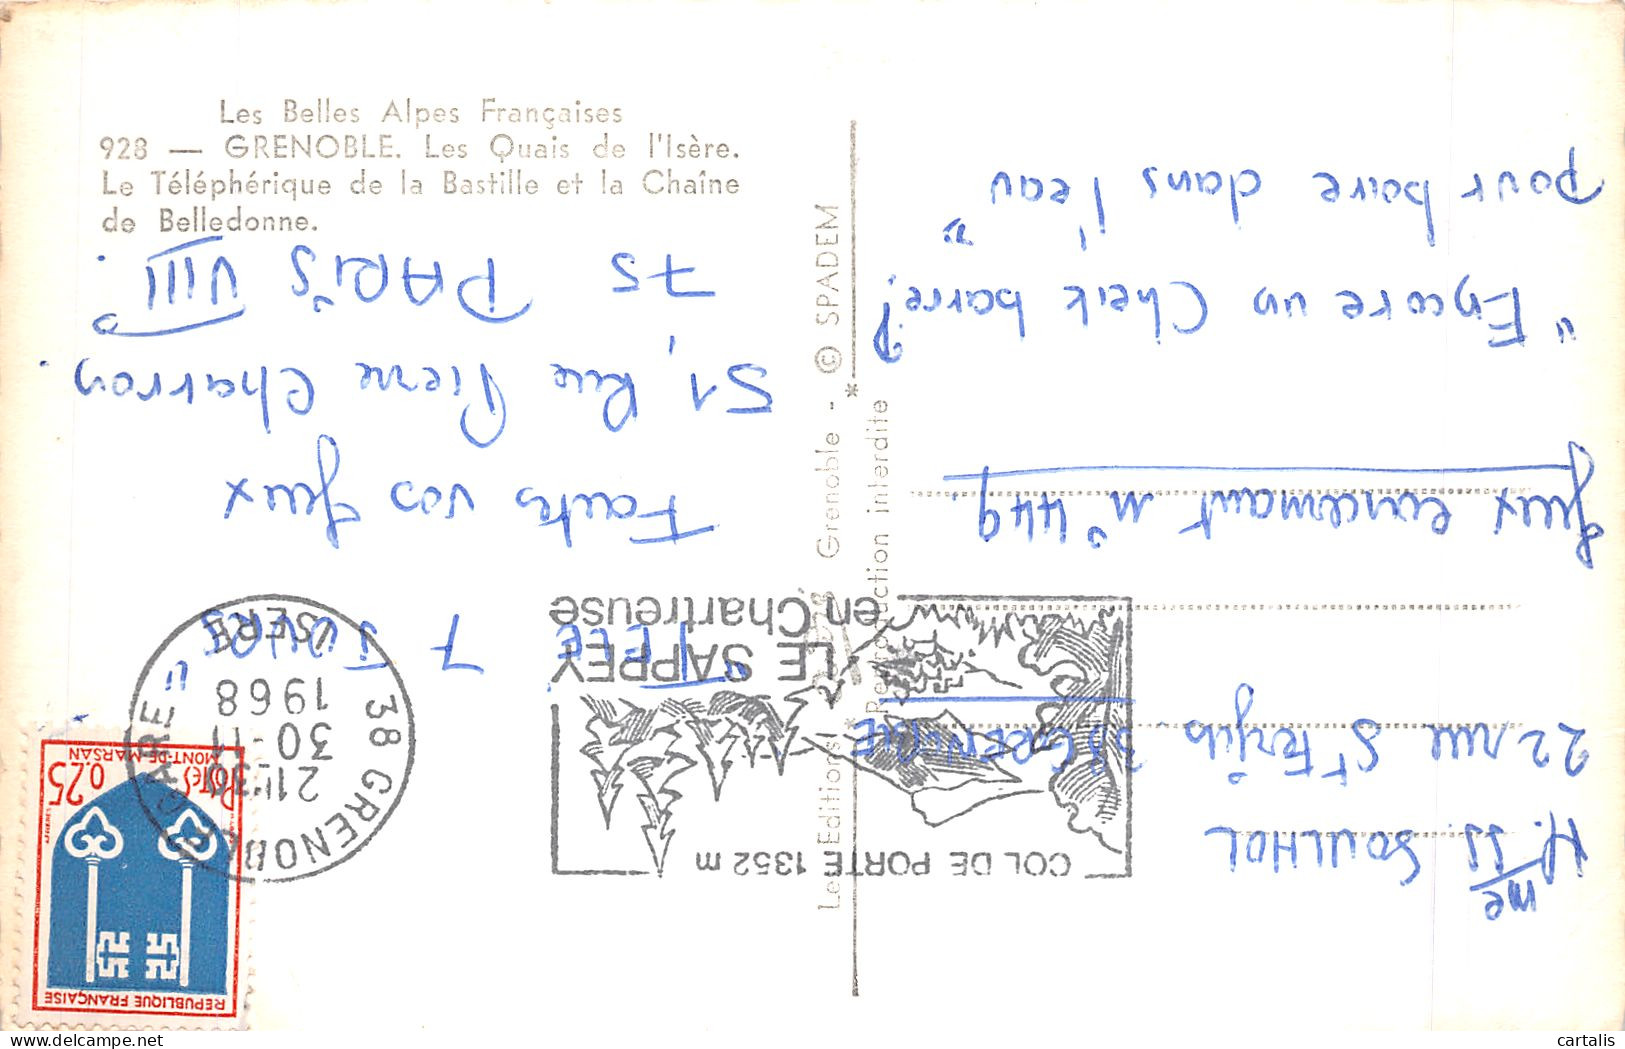 Les Belles Alpes Françaises
928 — GRENOBLE. Les Quais de l'Isère.
Le Téléphérique de la Bastille et la Chaîne
de Belledonne.
Les Editions
Grenoble - © SPADEM
* Reproduction interdite *
REPUBLIQUE FRANÇAISE
0,25 POSTES
MONT-DE-MARSAN
38 GRENOBLE GARE
21H30
30-11
1968
ISERE
COL DE PORTE 1352 m
LE SAPPEY
en Chartreuse
Mme SS. SOULHOL
22 rue St Ferjus 38 GRENOBLE
Jeux lancemant n° 449
"Encore un Cheik barre!
pour boire dans l'eau"
" TELE 7 JOURS "
Faites vos Jeux
51, Rue Pierre Charron.
75 PARIS VIII.
cartalis